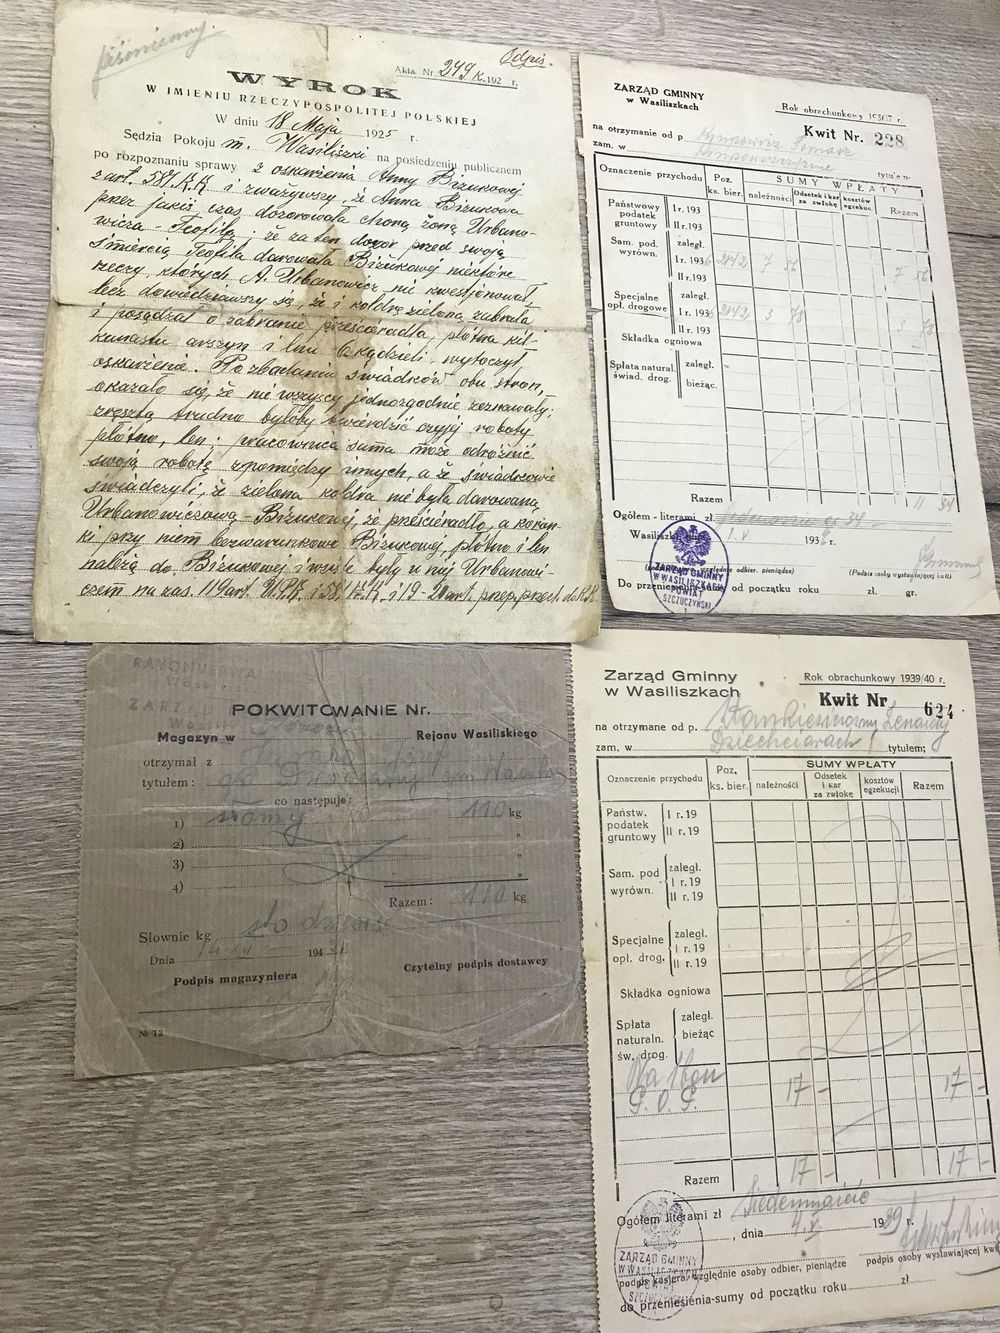 Odpis.
Akta Nr. 249 K. 192 r.
WYROK
W IMIENIU RZECZYPOSPOLITEJ POLSKIEJ
W dniu 18 Maja 1925 r.
Sędzia Pokoju m. Wasiliszki na posiedzeniu publicznem
po rozpoznaniu sprawy z oskarżenia Anny Bizukowej
z art. 581 K.K. i zważywszy, że Anna Bizukowa
przez jakiś czas dozorowała chorą żonę Urbano-
wicza - Teofilę; że za ten dozór przed swoją
śmiercią Teofila darowała Bizukowej niektóre
rzeczy, których A. Urbanowicz nie kwestjonował,
lecz dowiedziawszy się, że i kołdrę zieloną zabrała
i posądzał o zabranie prześcieradła, płótna kil-
kunastu arszyn i lnu 6 kądzieli, wytoczył
oskarżenie. Po zbadaniu świadków obu stron,
okazało się, że nie wszyscy jednozgodnie zeznawały;
zresztą trudno byłoby stwierdzić czyjej roboty
płótno, len; pracownica sama może odróżnić
swoją robotę z pomiędzy innych, a że świadkowie
świadczyli, że zielona kołdra nie była darowaną
Urbanowiczową - Bizukowej, że prześcieradło, a koron-
ki przy niem bezwarunkowo Bizukowej, płótno i len
należą do Bizukowej i wzięte były u niej Urbanowi-
czem na zas. 119 art. U.P.K. i 581 K.K. i 19-20 art. przep. przech. do K.K.
ZARZĄD GMINNY
w Wasiliszkach
Rok obrachunkowy 1936/7 r.
Kwit Nr. 228
na otrzymanie od p
zam. w
tytułem
Oznaczenie przychodu
Poz. ks. bier.
SUMY WPŁATY
należności
Odsetek i kar za zwłokę
kosztów egzekuc.
Razem
Państwowy podatek gruntowy
I r. 193
II r. 193
Sam. pod. wyrówn.
zaległ.
I r. 1936 2142 7 56 7 56
II r. 193
Specjalne opł. drogowe
zaległ.
I r. 1936 2142 3 78 3 78
II r. 193
Składka ogniowa
Spłata natural. świad. drog.
zaległ.
bieżąc.
Razem 11 34
Ogółem - literami zł. gr 34
Wasiliszki 1.V 1936 r.
względnie odbier. pieniądze)
(Podpis osoby wystawiającej kwit)
ZARZĄD GMINNY
W WASILISZKACH
POWIAT
SZCZUCZYŃSKI
Do przeniesienia od początku roku zł. gr.
POKWITOWANIE Nr.
Magazyn w Rejonu Wasiliskiego
otrzymał z
tytułem:
co następuje:
1) słomy 110 kg
2) "
3) "
4) "
Razem: 110 kg
Słownie kg. sto dziesięć
Dnia 194 r.
Podpis magazyniera
Czytelny podpis dostawcy
№ 72
Zarząd Gminny
w Wasiliszkach
Rok obrachunkowy 1939/40 r.
Kwit Nr 624
na otrzymane od p. Stankiewiczowny Lenardy
zam. w Dziechciarach tytułem;
Oznaczenie przychodu
Poz. ks. bier.
SUMY WPŁATY
należności
Odsetek i kar za zwłokę
kosztów egzekucji
Razem
Państw. podatek gruntowy
I r. 19
II r. 19
Sam. pod wyrówn.
zaległ.
I r. 19
II r. 19
Specjalne opł. drog,
zaległ.
I r. 19
II r. 19
Składka ogniowa
Spłata naturaln. św. drog.
zaległ.
bieżąc
Na
P. O. P. 17 - 17 -
Razem 17 - 17 -
Ogółem literami zł Siedemnaście
, dnia 4.V 1939 r.
podpis kasjera, względnie osoby odbier, pieniądze
podpis osoby wystawiającej kwit
ZARZĄD GMINNY
W WASILISZKACH
POWIAT
SZCZUCZYŃSKI
do przeniesienia-sumy od początku roku zł.